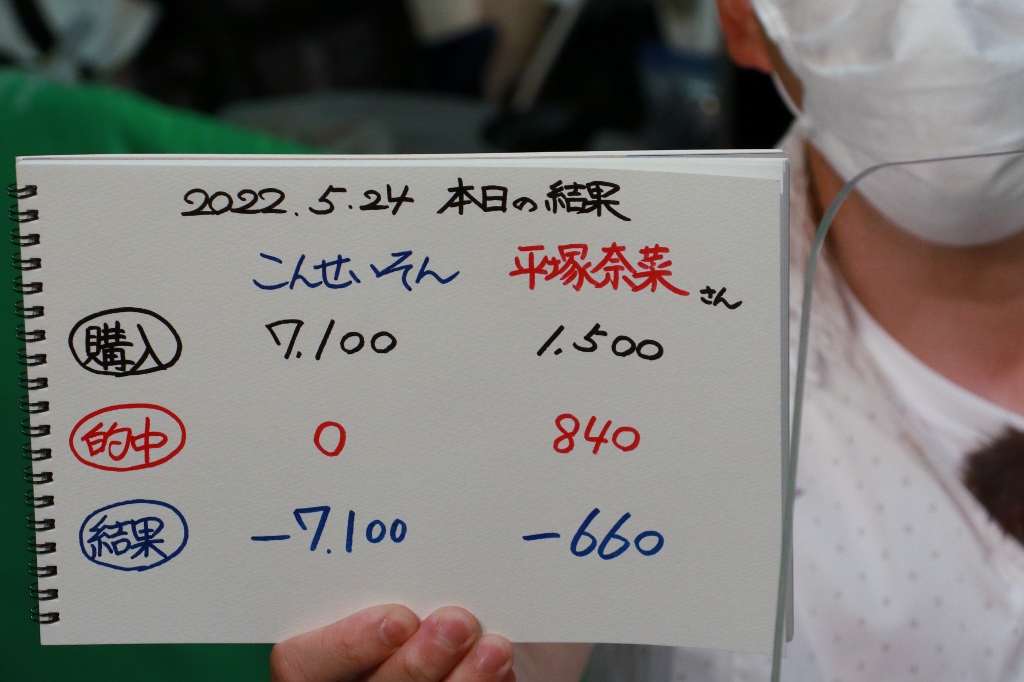 2022.5.24 本日の結果
こんせいそん 平塚奈菜さん
購入 7.100 1.500
的中 0 840
結果 -7.100 -660